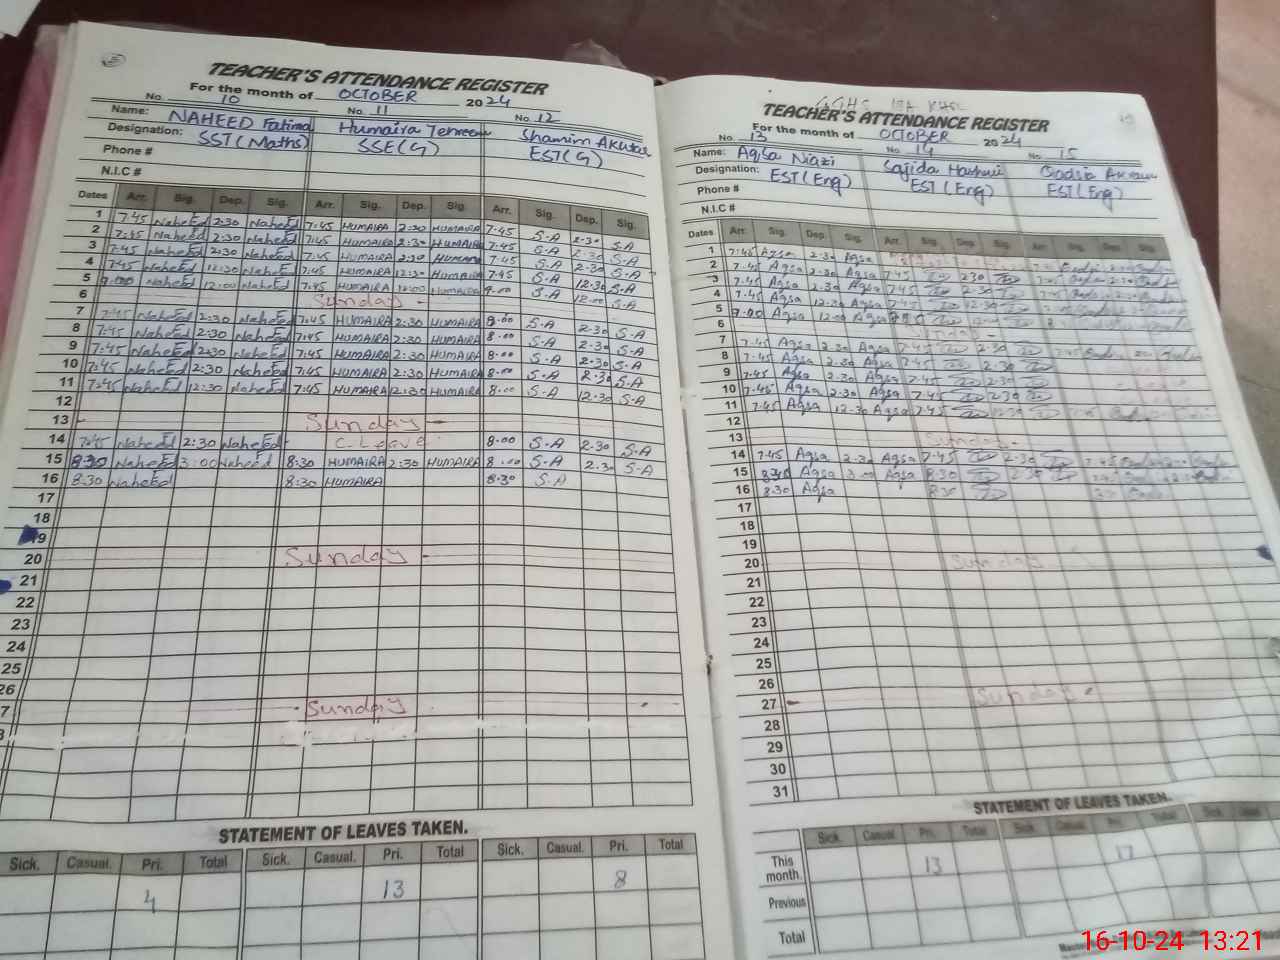 TEACHER'S ATTENDANCE REGISTER
For the month of OCTOBER 2024
No. 10 No. 11 No. 12
Name: NAHEED Fatima Humaira Shamim Akhtar
Designation: SST (Maths) SSE (G) EST (G)
Phone #
N.I.C #
Dates Arr. Sig. Dep. Sig. Arr. Sig. Dep. Sig. Arr. Sig. Dep. Sig.
1 7:45 NaheEd 2:30 NaheEd 7:45 HUMAIRA 2:30 HUMAIRA 7:45 S-A 2:30 S-A
2 7:45 NaheEd 2:30 NaheEd 7:45 HUMAIRA 2:30 HUMAIRA 7:45 S-A 2:30 S-A
3 7:45 NaheEd 2:30 NaheEd 7:45 HUMAIRA 2:30 HUMAIRA 7:45 S-A 2:30 S-A
4 7:45 NaheEd 12:30 NaheEd 7:45 HUMAIRA 12:30 HUMAIRA 7:45 S-A 12:30 S-A
5 9:00 NaheEd 12:00 NaheEd 7:45 HUMAIRA 12:00 HUMAIRA 9:00 S-A 12:00 S-A
6 Sunday
7 7:45 NaheEd 2:30 NaheEd 7:45 HUMAIRA 2:30 HUMAIRA 8:00 S-A 2:30 S-A
8 7:45 NaheEd 2:30 NaheEd 7:45 HUMAIRA 2:30 HUMAIRA 8:00 S-A 2:30 S-A
9 7:45 NaheEd 2:30 NaheEd 7:45 HUMAIRA 2:30 HUMAIRA 8:00 S-A 2:30 S-A
10 7:45 NaheEd 2:30 NaheEd 7:45 HUMAIRA 2:30 HUMAIRA 8:00 S-A 2:30 S-A
11 7:45 NaheEd 12:30 NaheEd 7:45 HUMAIRA 12:30 HUMAIRA 8:00 S-A 12:30 S-A
12
13 Sunday
14 7:45 NaheEd 2:30 NaheEd C.Leave 8:00 S-A 2:30 S-A
15 8:30 NaheEd 3:00 NaheEd 8:30 HUMAIRA 2:30 HUMAIRA 8:00 S-A 2:30 S-A
16 8:30 NaheEd 8:30 HUMAIRA 8:30 S-A
17
18
19
20 Sunday
21
22
23
24
25
26
7 Sunday
STATEMENT OF LEAVES TAKEN.
Sick. Casual. Pri. Total Sick. Casual. Pri. Total Sick. Casual. Pri. Total
4 13 8
TEACHER'S ATTENDANCE REGISTER
For the month of OCTOBER 2024
No. 13 No. 14 No. 15
Name: Aqsa Niazi Sajida
Designation: EST (Eng) EST (Eng) EST (Eng)
Phone #
N.I.C #
Dates Arr. Sig. Dep. Sig. Arr. Sig. Dep. Sig. Arr. Sig. Dep. Sig.
1 7:45 Aqsa 2:30 Aqsa
2 7:45 Aqsa 2:30 Aqsa 7:45 2:30
3 7:45 Aqsa 2:30 Aqsa 7:45 2:30
4 7:45 Aqsa 12:30 Aqsa 7:45 12:30
5 9:00 Aqsa 12:00 Aqsa
6 Sunday
7 7:45 Aqsa 2:30 Aqsa 7:45 2:30
8 7:45 Aqsa 2:30 Aqsa 7:45 2:30
9 7:45 Aqsa 2:30 Aqsa 7:45 2:30
10 7:45 Aqsa 2:30 Aqsa 7:45 2:30
11 7:45 Aqsa 12:30 Aqsa 7:45 12:30
12
13 Sunday
14 7:45 Aqsa 2:30 Aqsa 7:45 2:30
15 8:30 Aqsa 3:00 Aqsa 8:30 2:30
16 8:30 Aqsa 8:30
17
18
19
20 Sunday
21
22
23
24
25
26
27 Sunday
28
29
30
31
STATEMENT OF LEAVES TAKEN.
Sick. Casual. Pri. Total Sick. Casual. Pri. Total Sick.
This month. 13 17
Previous
Total
16-10-24 13:21